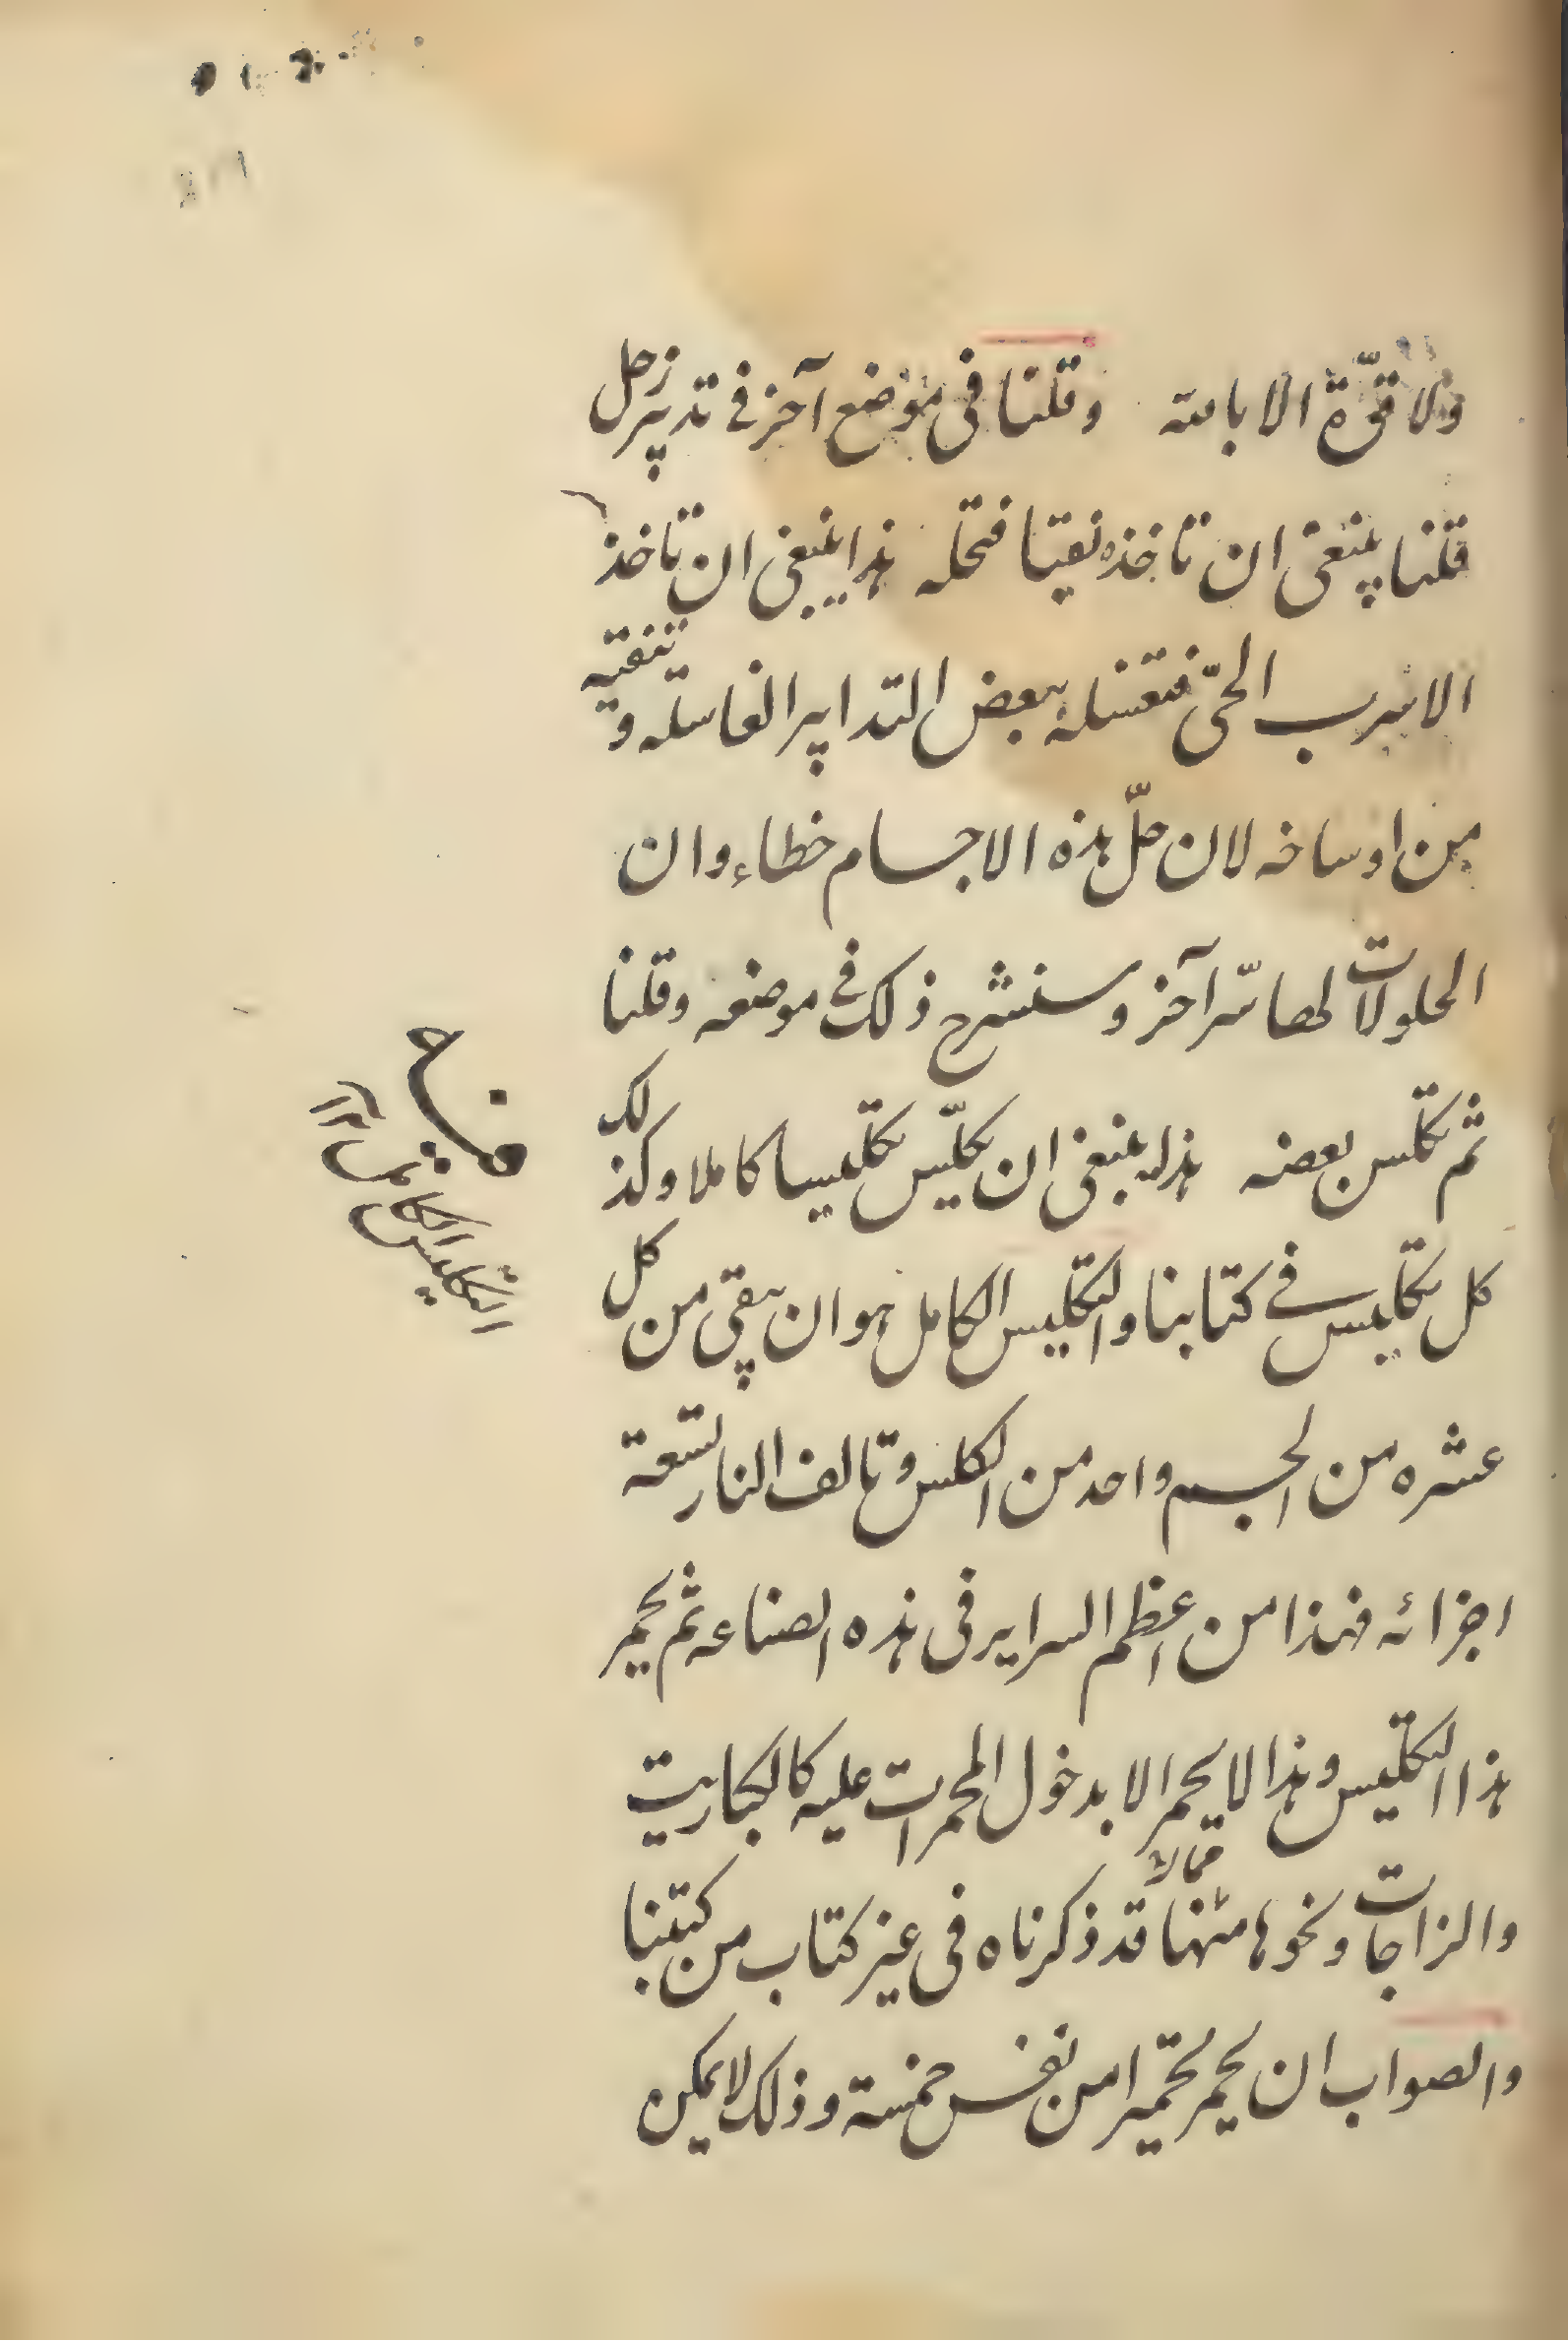 ولا قوّة الا بالله وقلنا فى موضع آخر فى تدبير زحل
قلنا ينبغى ان تاخذه نقيا فتحله هذا ينبغى ان تاخذ
الاسرب الحىّ فتغسله ببعض التدابير الغاسله و تنقيه
من اوساخه لان حلّ هذه الاجسام خطاء وان
الحلولات لها سّر آخر وسنشرح ذلك فى موضعه وقلنا
ثم تكلس بعضه هذا ينبغى ان يكلّس تكليسا كاملا وكذلك
كل تكليس فى كتابنا والتكليس الكامل هو ان يبقى من كل
عشره من الجسم واحد من الكلس وتالف النار تسعة
اجزائه فهذا من اعظم السراير فى هذه الصناعه ثم يحمر
هذا التكليس وهذا لا يحمر الا بدخول المحمرات عليه كالكباريت
والزاجات ونحوها مما قد ذكرناه فى غير كتاب من كتبنا
والصواب ان يحمر تحميرا من نفس خمسة وذلك لا يمكن
التكليس الكامل